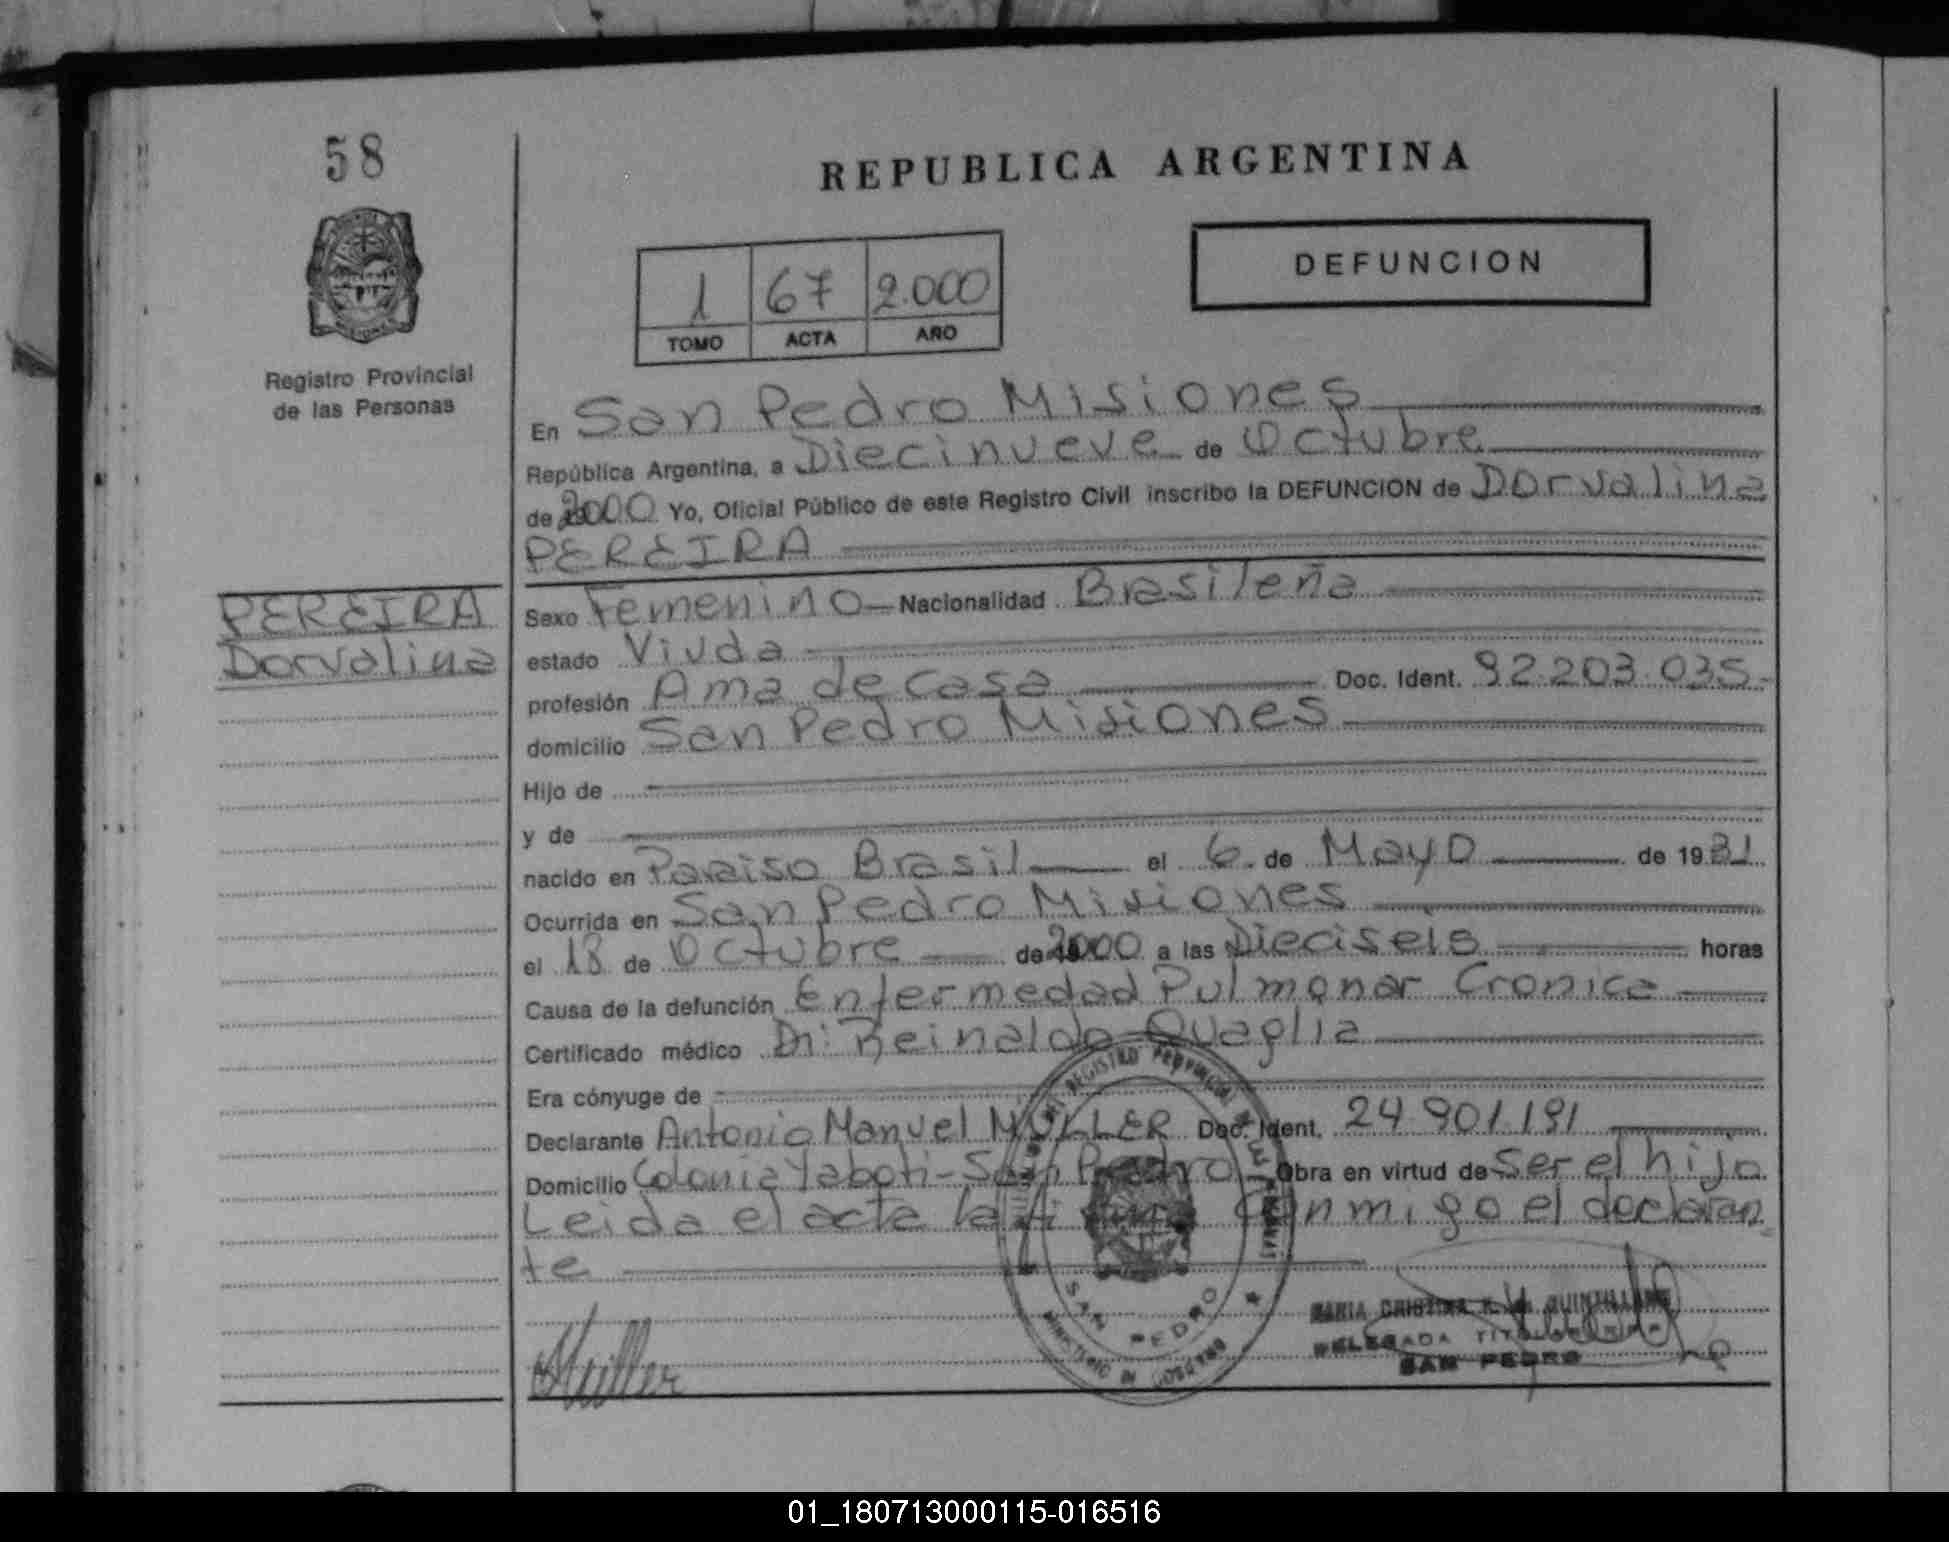 58
REPUBLICA ARGENTINA
DEFUNCION
1 67 2.000
TOMO ACTA AÑO
Registro Provincial
de las Personas
En San Pedro Misiones
República Argentina, a Diecinueve de Octubre
de 2000 Yo, Oficial Público de este Registro Civil inscribo la DEFUNCION de Dorvalina
PEREIRA
PEREIRA
Dorvalina
Sexo Femenino Nacionalidad Brasileña
estado Viuda
profesión Ama de casa Doc. Ident. 92.203.035
domicilio San Pedro Misiones
Hijo de
y de
nacido en Paraiso Brasil el 6 de Mayo de 1931
Ocurrida en San Pedro Misiones
el 18 de Octubre de 2000 a las Dieciseis horas
Causa de la defunción Enfermedad Pulmonar Cronica
Certificado médico Dr: Reinaldo Quaglia
Era cónyuge de
Declarante Antonio Manuel MÜLLER Doc. Ident. 24.901.191
Domicilio Colonia Yaboti - San Pedro Obra en virtud de Ser el hijo
Leida el acta la firma Conmigo el declaran
te
REGISTRO PROVINCIAL DE LAS PERSONAS
SAN PEDRO
MINISTERIO DE GOBIERNO
Müller
MARIA CRISTINA
DELEGADA TITULAR
SAN PEDRO
01_180713000115-016516